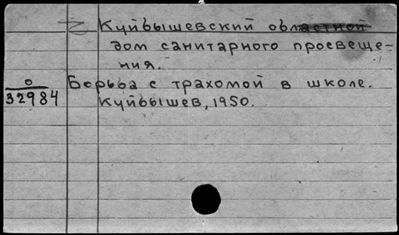 Куйбышевский областной
дом санитарного просвеще-
ния.
О
32984
Борьба с трахомой в школе.
Куйбышев, 1950.